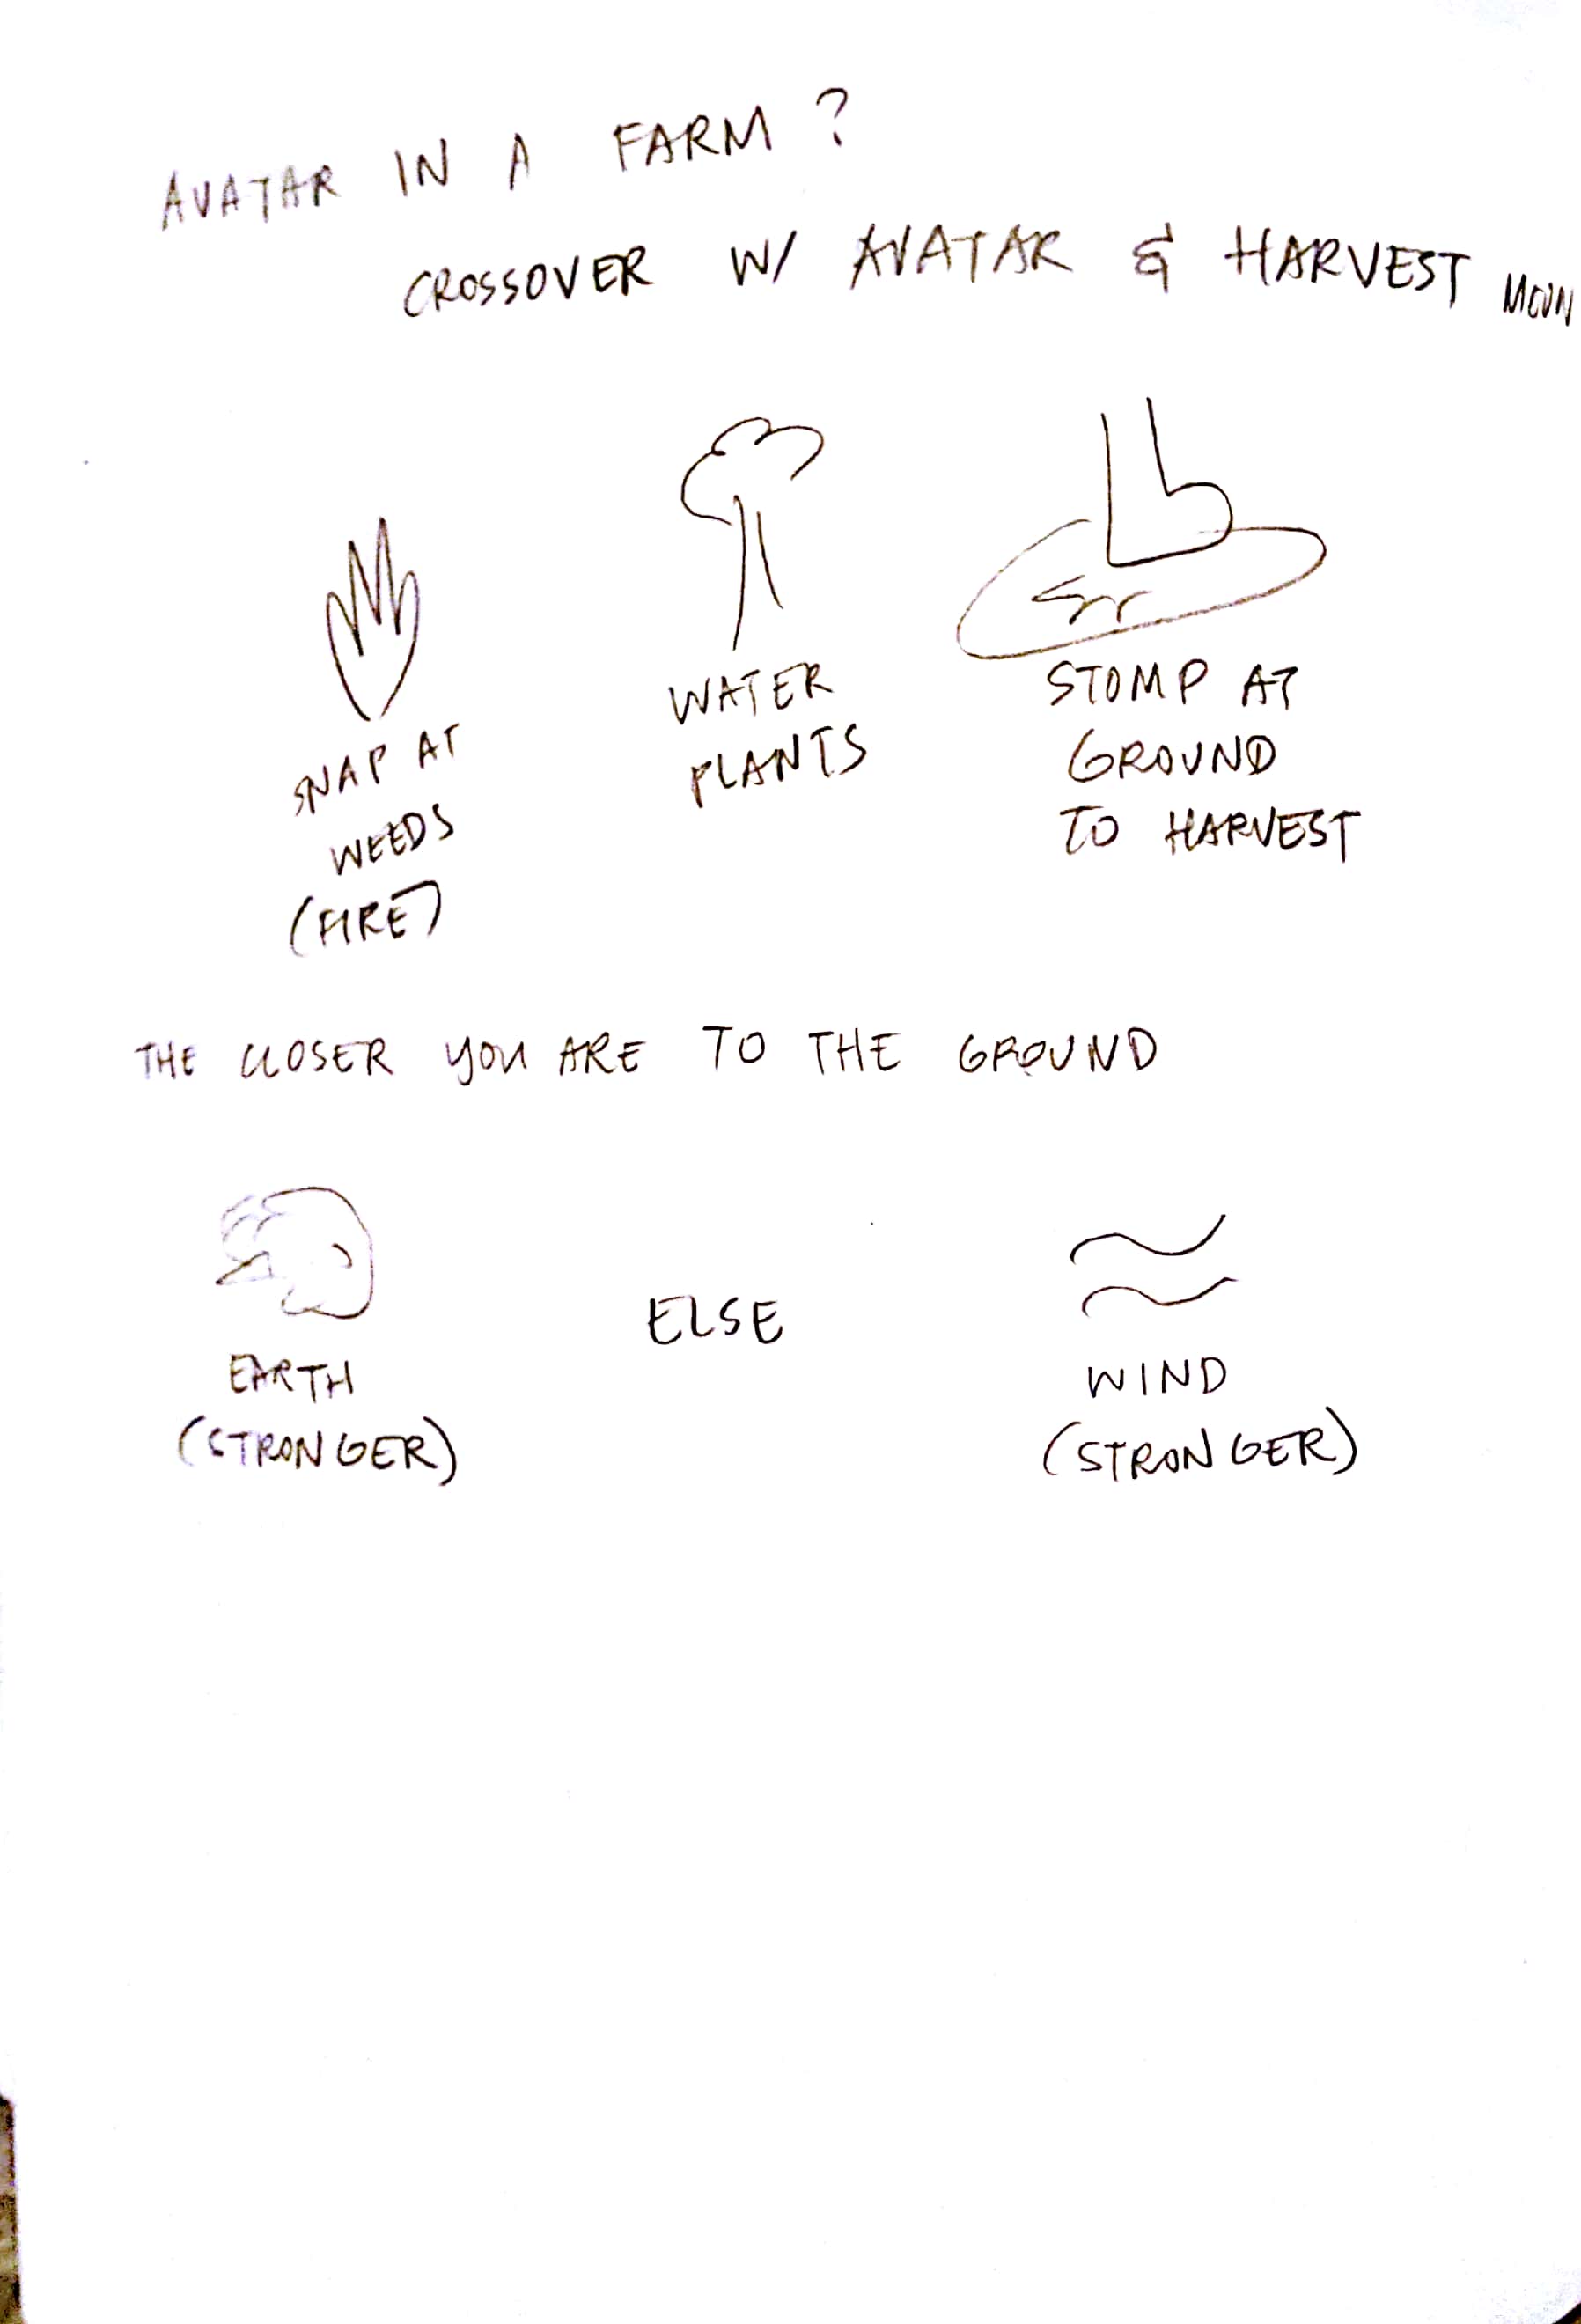 AVATAR IN A FARM?
CROSSOVER W/ AVATAR & HARVEST MOON
SNAP AT
WEEDS
(FIRE)
WATER
PLANTS
STOMP AT
GROUND
TO HARVEST
THE CLOSER YOU ARE TO THE GROUND
EARTH
(STRONGER)
ELSE
WIND
(STRONGER)